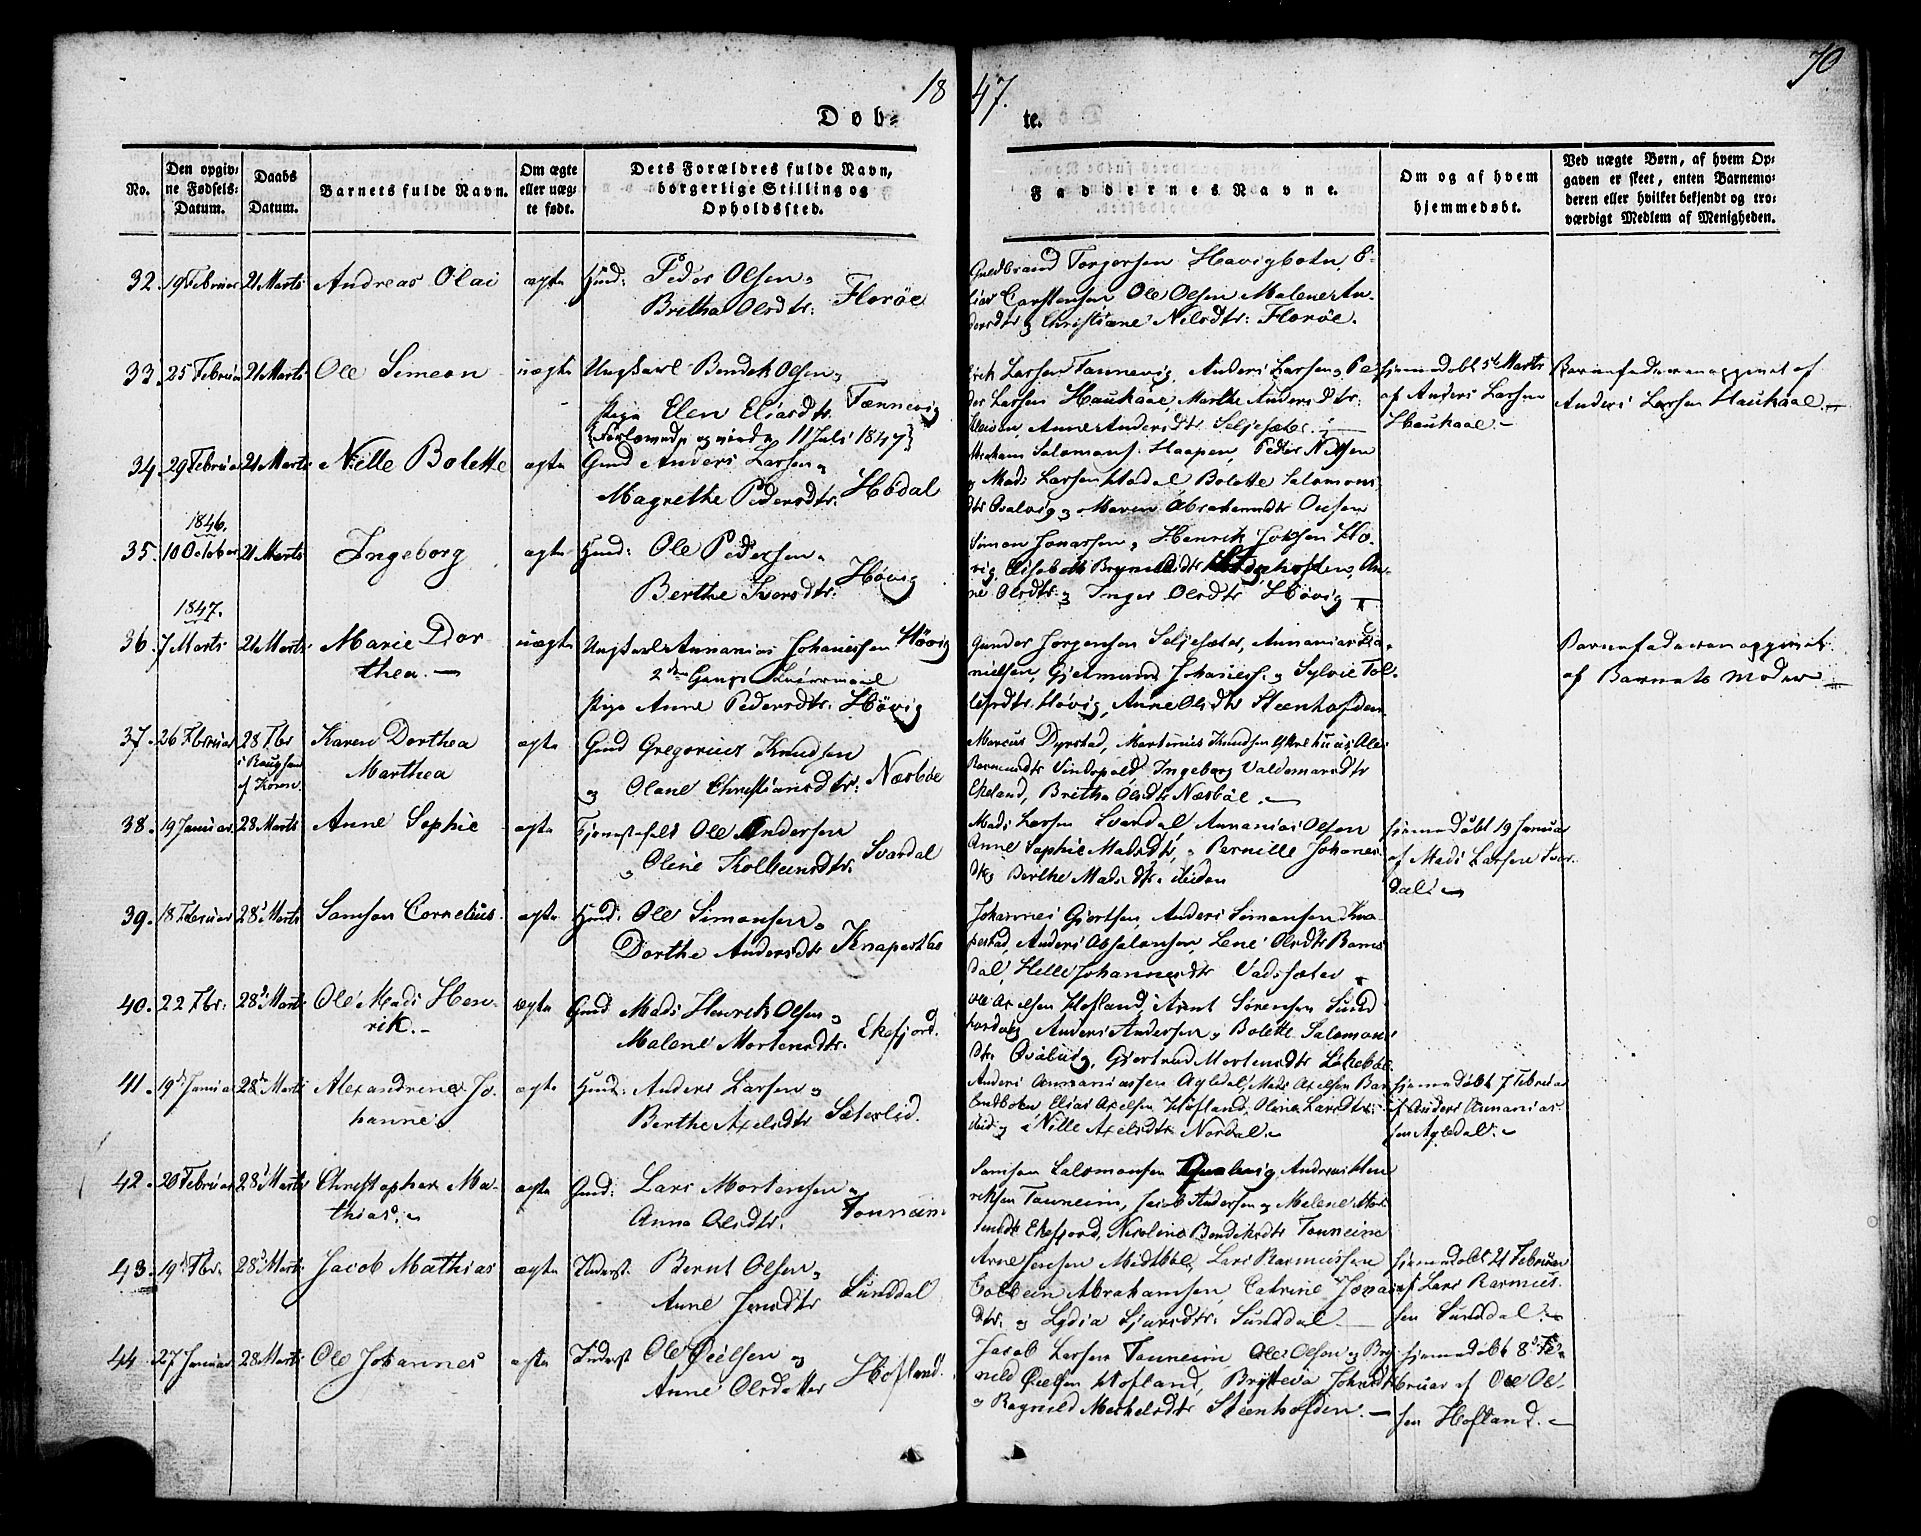 1847.
70
Døb-
te.
No.
Den opgiv-
ne Fødsels-
Datum.
Daabs
Datum.
Barnets fulde Navn.
Om ægte
eller uæg-
te født.
Dets Forældres fulde Navn,
borgerlige Stilling og
Opholdssted.
Faddernes Navne.
Om og af hvem
hjemmedøbt.
Ved uægte Børn, af hvem Op-
gaven er skeet, enten Barnemo-
deren eller hvilket bekjendt og tro-
værdigt Medlem af Menigheden.
32. 19 Februar 21 Marts Andreas Olai ægte Huusmd: Peder Olsen
Britha Olsdtr: Florøe
Guldbrand Torgersen Havigbotn, E-
lias Carstensen, Ole Olsen Malene An-
dersdtr og Christiane Nilsdtr: Florøe.
33. 25 Februar 21 Marts Ole Simeon uægte Ungkarl Bendek Olsen
Pige Elen Eliasdtr. Tønnevig
11 Juli 1847
Larsen Tannevig, Anders Larsen, Pe-
der Larsen Haukaae, Marthe Andersdtr:
Anne Andersdtr Seljesæter
hjemmedøbt 5te Marts
af Anders Larsen
Haukaae
Barnefaderen opgivet af
Anders Larsen Haukaae
34. 29 Februar 21 Marts Nille Bolette ægte Gmd Anders Larsen
Magrethe Pedersdtr: Hødal
Salomons: Haapen, Peder Nilsen
og Mads Larsen Hødal Bolette Salomons
dtr Qvalvig og Maren Abrahamsdtr
1846.
35. 10 October 21 Marts Ingeborg ægte Huusmd: Ole Pedersen
Berthe Iversdtr: Høvig
Simon Jonassen, Henrik Hø-
vig, Elisabeth Steenhofden, An-
ne Olsdtr: og Inger Olsdtr Høvig
1847.
36. 7 Marts 21 Marts Marie Dor-
thea. uægte Ungkarl Annanias Johanessen Høvig
2den Gangs Leiermaal
Pige Anne Pedersdtr: Høvig
Gunder Jørgensen Seljesæter, Annanias Da-
nielsen, Gjetmund Johaness: og Sylvie Tol-
lefsdtr: Høvig, Anne Olsdtr Steenhofden
Barnefaderen opgivet
af Barnets Moder
37. 26 Februar 28 Fbr
i
af Koren Karen Dorthea
Marthea ægte Gmd Gregorius Knudsen
og Oliane Christiansdtr: Næsbøe
Marcus Dyrstad, Martinus Knudsen
Rasmusdtr Ingeborg Valdemarsdtr
Ekeland, Britha Olsdtr Næsbøe.
38. 19 Januar 28 Marts Anne Sophie ægte Ole Andersen
Oline Kolbensdtr. Svardal
Mads Larsen Svardal Annanias Olsen
Anne Sophie Madsdtr, Pernille Johanes-
dtr Berthe Madsdtr. ibiden
hjemmedøbt 19 Januar
af Mads Larsen Svar-
dal
39. 18 Februar 28 Marts Samson Cornelius. ægte Huusmd: Ole Simonsen
Dorthe Andersdtr Knapestad
Johannes Gjertsen, Anders Simonsen Kna-
pestad, Anders Absalonsen, Lene Olsdtr Rams-
dal, Helle Johannesdtr Vadsæter
40. 22 Fbr. 28 Marts Ole Mads Hen-
rik. ægte Gmd Mads Henrik Olsen
Malene Mortensdtr: Ekefjord.
Ole Axelsen Hofland, Arent Sørensen Sund
Anders Andersen, Bolette Salomons
dtr. Qvalvig, Gjertrud Mortensdtr
41. 19 Januar 28 Marts Alexandrine Jo-
hanne. ægte Huusmd: Anders Larsen
Berthe Axelsdtr Sæterlid.
Anders Annaniassen Agledal, Mads Axelsen
Elias Axelsen Hofland, Oline Larsdtr:
Nille Axelsdtr Nordal
hjemmedøbt 7 Februar
af Anders Annanias-
sen Agledal
42. 20 Februar 28 Marts Christopher Ma-
thias. ægte Gmd: Lars Mortensen
Anna Olsdtr. Tonneim
Samson Salomonsen Qvalvig, Andreas Hen-
riksen Tauneim, Jacob Andersen og Malene Mor-
tensdtr Ekefjord, Nicoline Bendiksdtr Tonneim
43. 19 Fbr. 28 Marts Jacob Mathias ægte Inderst: Bernt Olsen
Anne Jensdtr Sunddal
Arne Jensen Midtbøe, Lars Rasmussen
Colbein Abrahamsen, Catrine Jonas
dtr: og Lydia Sjursdtr: Sunddal
hjemmedøbt 21 Februar
af Lars Rasmus-
sen Sunddal.
44. 27 Januar 28 Marts Ole Johannes ægte Inderst Ole Øielsen
Anne Olsdatter Hofland.
Jacob Larsen Tonneim, Ole Olsen og Bry-
neld Øielsen Hofland, Britteva Johnsdtr
og Ragnild Mechelsdtr Steenhofden.
hjemmedøbt 8de Fe-
bruar af Ole Ol-
sen Hofland.